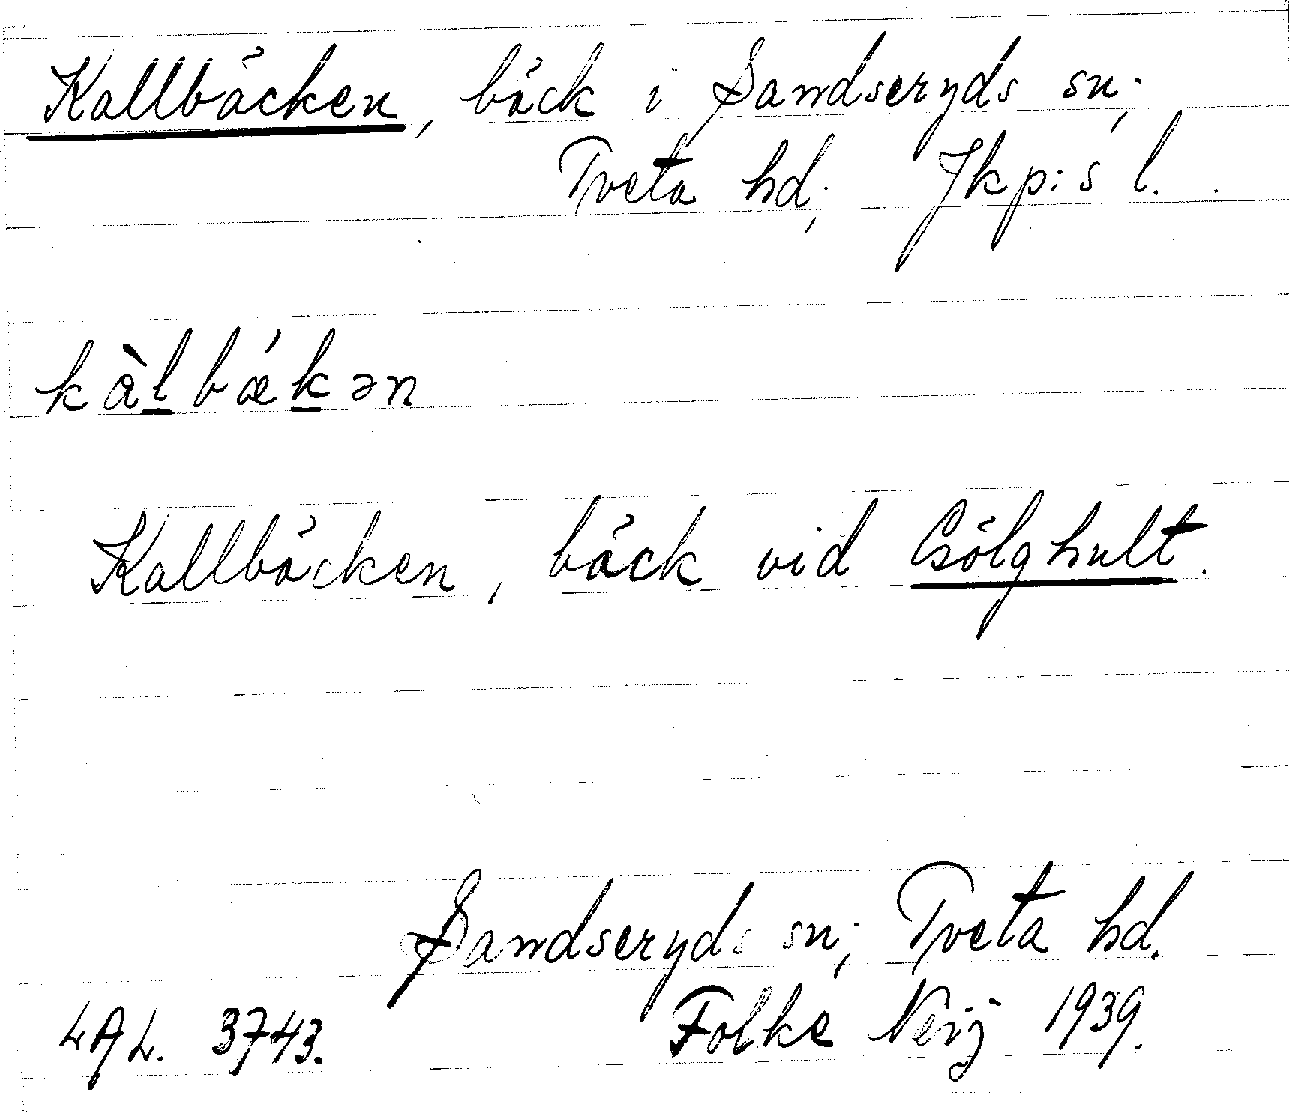 Kallbäcken, bäck i Sandseryds sn;
Tveta hd; Jkp:s l.
kàl̲bǽk̲ən
Kallbäcken, bäck vid Gölghult.
Sandseryds sn; Tveta hd.
LAL. 3743. Folke Neij 1939.